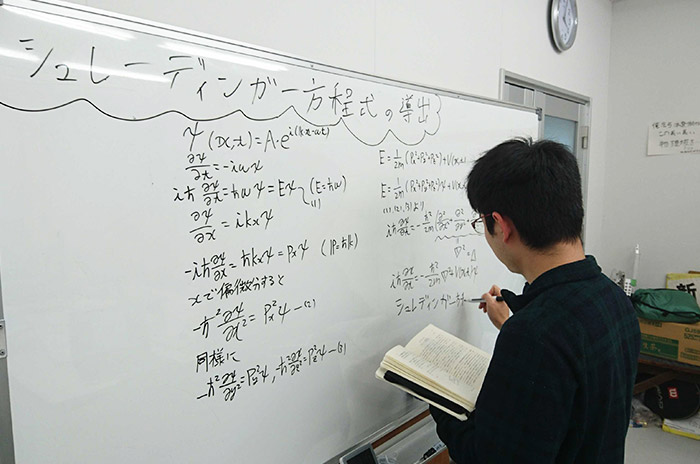 シュレーディンガー方程式の導出
ψ(x,t)=A・e^{i(kx-ωt)}
∂ψ/∂t=-iωψ
iℏ ∂ψ/∂t=ℏωψ=Eψ (E=ℏω)
(1)
∂ψ/∂x=ikxψ
-iℏ ∂ψ/∂x=ℏkxψ=Pxψ (P=ℏk)
xで偏微分すると
-ℏ² ∂²ψ/∂x²=Px²ψ-(2)
同様に
-ℏ² ∂²ψ/∂y²=Py²ψ, -ℏ² ∂²ψ/∂z²=Pz²ψ-(3)
E=1/2m(Px²+Py²+Pz²)+V(x,t)
E=1/2m(Px²+Py²+Pz²)ψ+V(x,t)
(1),(2),(3)より
iℏ ∂ψ/∂t=-ℏ²/2m(∂²/∂x²+∂²/∂y²+
∇²=Δ
iℏ ∂ψ/∂t=-ℏ²/2m ∇²ψ+V(x,t)ψ
シュレディンガー
新